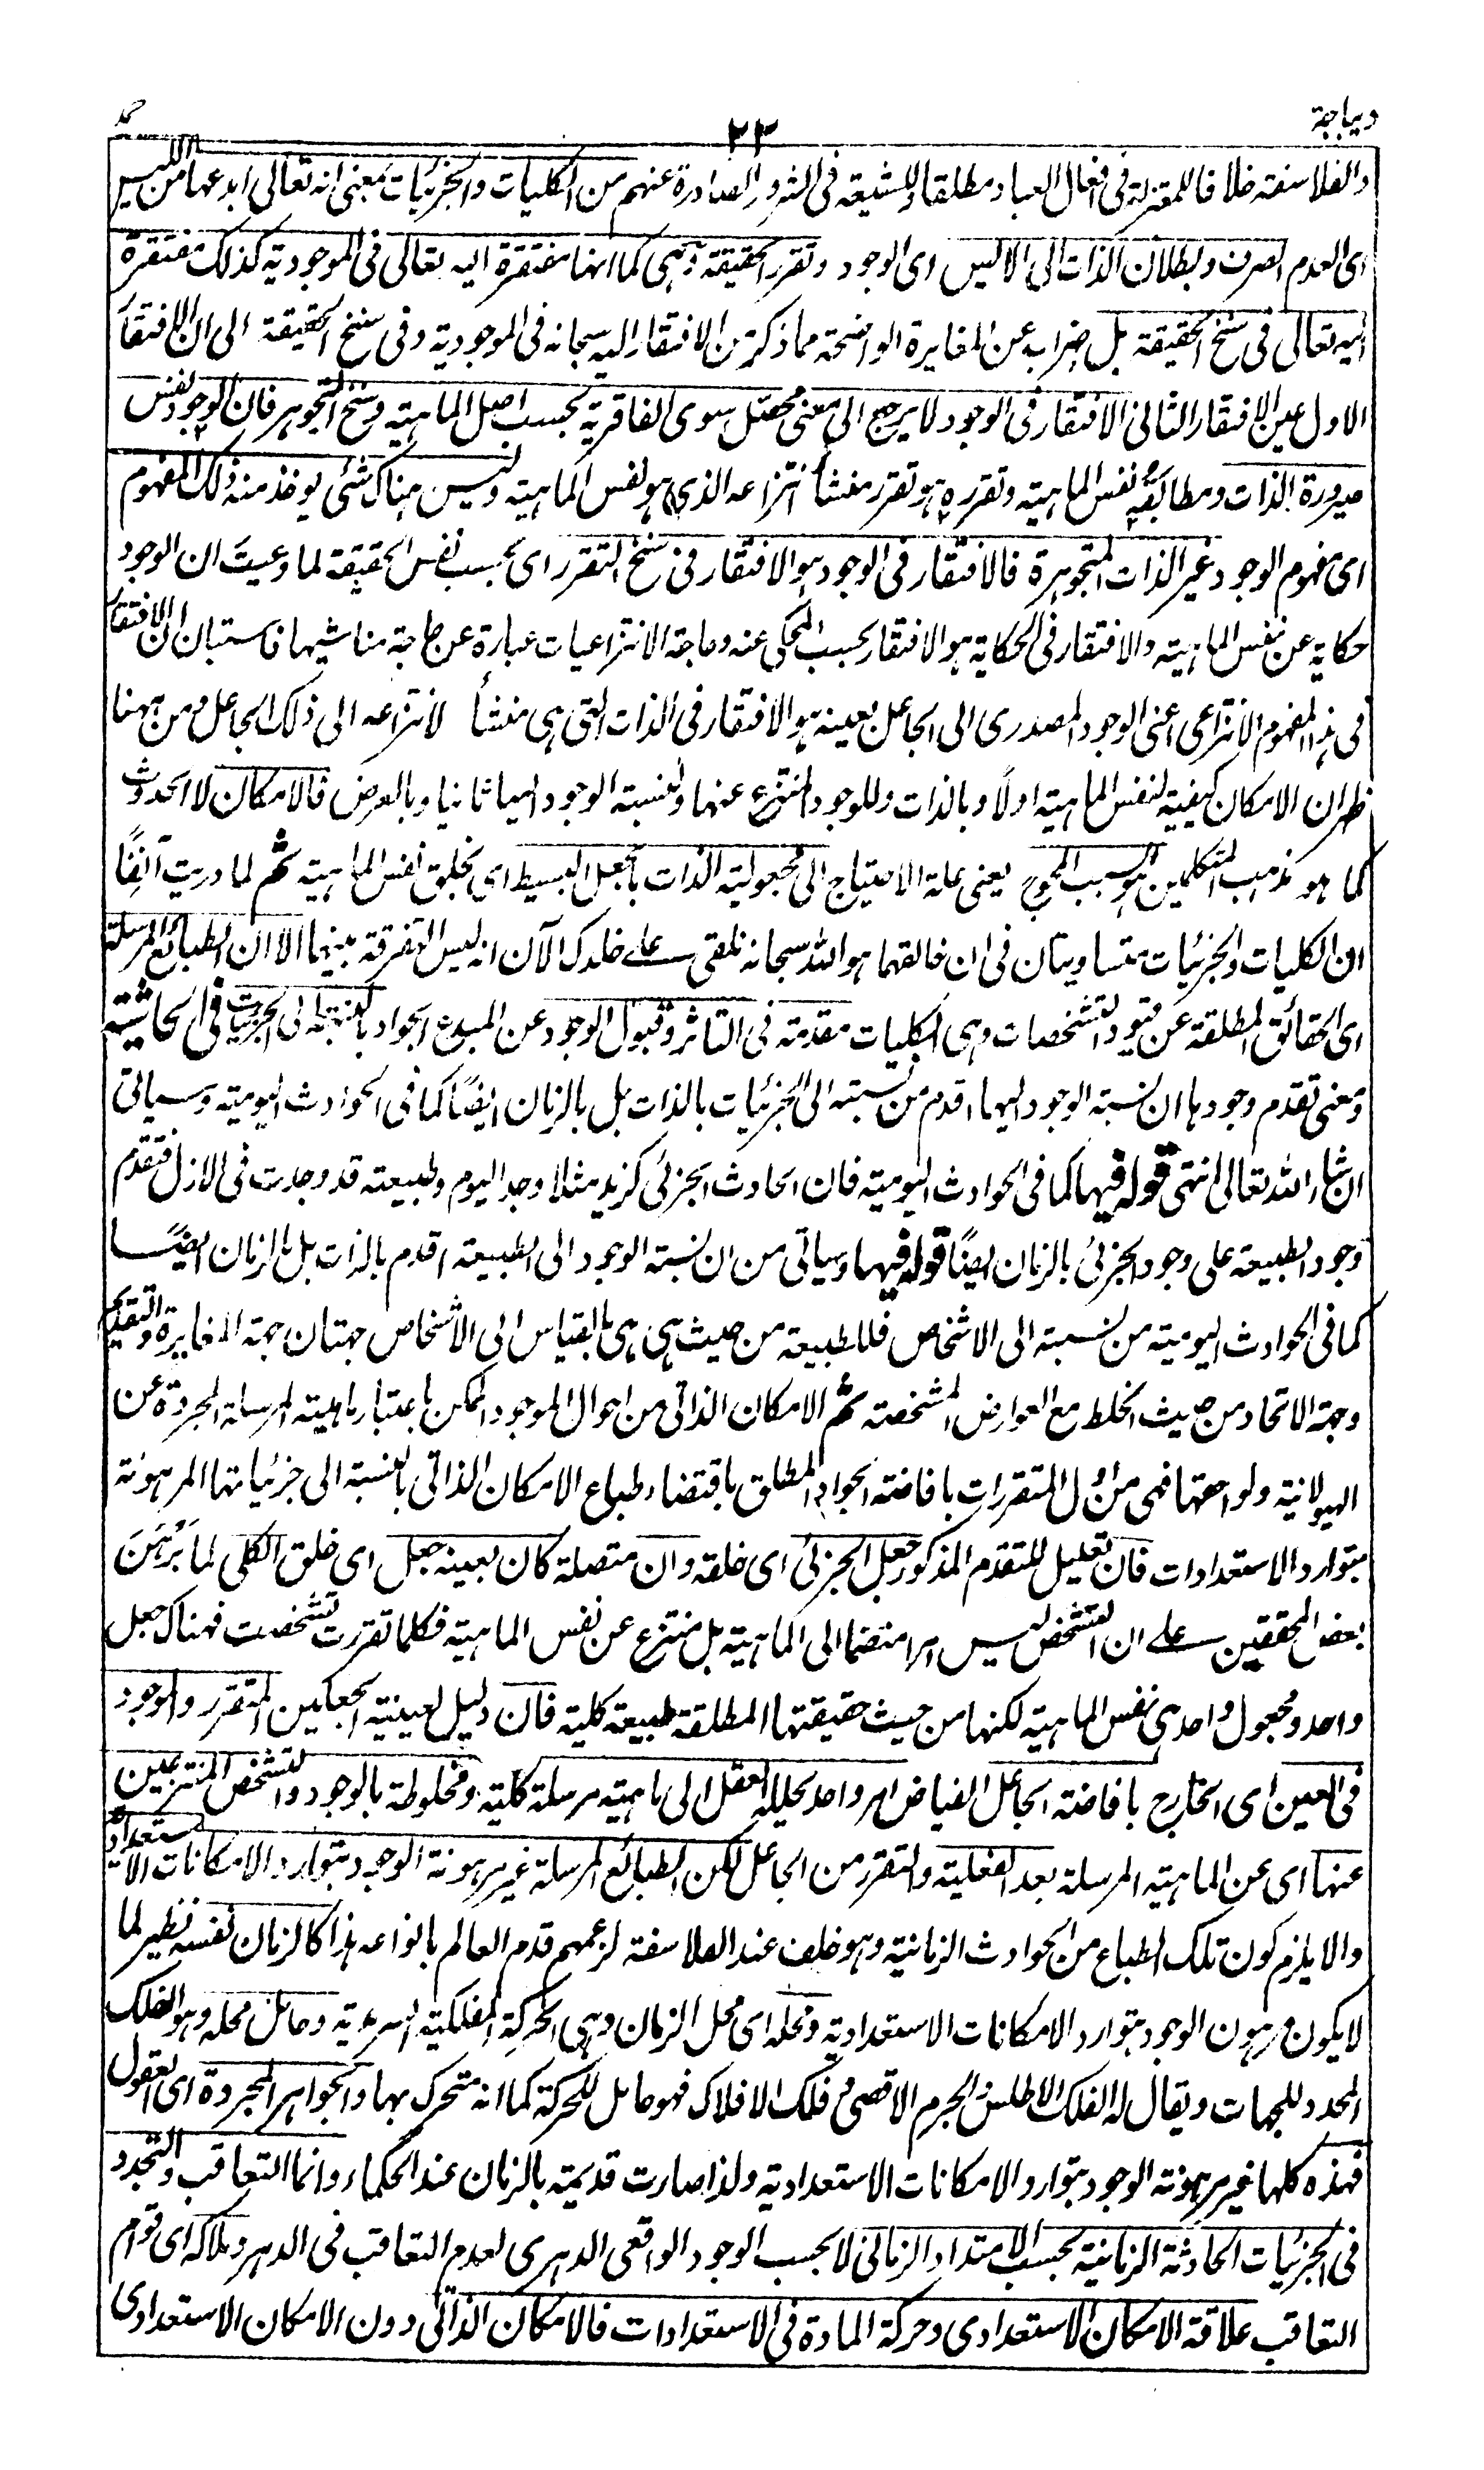 ديباجة
٢٣
حمد
والفلاسفة خلافا للمعتزلة فى افعال العباد مطلقا وللشيعة فى الشرور الصادرة عنهم من الكليات والجزئيات بمعنى انه تعالى ابدعها من الليس
اى العدم الصرف وبطلان الذات الى الايس اى الوجود وتقرر الحقيقة وهى كما انها مفتقرة اليه تعالى فى الموجودية كذلك مفتقرة
اليه تعالى فى سنخ الحقيقة بل اضراب عن المغايرة الواضحة مما ذكر من الافتقار اليه سبحانه فى الموجودية وفى سنخ الحقيقة الى ان الافتقار
الاول عين الافتقار الثانى الافتقار فى الوجود لا يرجع الى معنى محصل سوى الفاقرية بحسب اصل الماهية وسنخ التجوهر فان الوجود نفس
صيرورة الذات ومطابَقُه نفس الماهية وتقرره هو تقرر منشأ انتزاعه الذى هو نفس الماهية وليس هناك شئ يوخذ منه ذلك المفهوم
اى مفهوم الوجود غير الذات المتجوهرة فالافتقار فى الوجود هو الافتقار فى سنخ التقرر اى بحسب نفس الحقيقة لما وعيت ان الوجود
حكاية عن نفس الماهية والافتقار فى الحكاية هو الافتقار بحسب المحكى عنه وحاجة الانتزاعيات عبارة عن حاجة مناشيها فاستبان ان الافتقار
فى هذا المفهوم الانتزاعى اعنى الوجود المصدرى الى الجاعل بعينه هو الافتقار فى الذات التى هى منشأ لانتزاعه الى ذلك الجاعل ومن ههنا
ظهر ان الامكان كيفية لنفس الماهية اولًا وبالذات وللوجود المنتزع عنها ولنسبة الوجود اليها ثانيا وبالعرض فالامكان لا الحدوث
كما هو مذهب المتكلمين هو السبب المحوج يعنى علة الاحتياج الى مجعولية الذات بالجعل البسيط اى بخلق نفس الماهية ثم لما دريت آنفًا
ان الكليات والجزئيات متساويتان فى ان خالقهما هو الله سبحانه نلقى على خلدك الآن انه ليس التفرقة بينهما الا ان الطبائع المرسلة
اى الحقائق المطلقة عن قيود التشخصات وهى الكليات مقدمة فى التاثر وقبول الوجود عن المبدع الجواد بالنسبة الى الجزئيات فى الحاشية
ومعنى تقدم وجودها ان نسبة الوجود اليها اقدم من نسبته الى الجزئيات بالذات بل بالزمان ايضًا كما فى الحوادث اليومية وسياتى
ان شاء الله تعالى انتهى قوله فيها كما فى الحوادث اليومية فان الحادث الجزئى كزيد مثلا وجد اليوم وطبيعته قد وجدت فى الازل فتقدم
وجود الطبيعة على وجود الجزئى بالزمان ايضًا قوله فيها وسياتى من ان نسبة الوجود الى الطبيعة اقدم بالذات بل بالزمان ايضًا
كما فى الحوادث اليومية من نسبته الى الاشخاص فللطبيعة من حيث هى هى بالقياس الى الاشخاص جهتان جهة المغايرة والتقديم
وجهة الاتحاد من حيث الخلط مع العوارض المشخصة ثم الامكان الذاتى من احوال الموجود الممكن باعتبار ماهيته المرسلة المجردة عن
الهيولانية ولواحقها فهى من اول المتقررات بافاضة الجواد المطلق باقتضاء طباع الامكان الذاتى بالنسبة الى جزئياتها المرهونة
بتوارد الاستعدادات فان تعليل للتقدم المذكور جعل الجزئى اى خلقه وان متصلة كان بعينه جعل اى خلق الكلى لما بَرْهَنَ
بعض المحققين على ان التشخص ليس امرا منضما الى الماهية بل منتزع عن نفس الماهية فكلما تقررت تشخصت فهناك جعل
واحد ومجعول واحد هى نفس الماهية لكنها من حيث حقيقتها المطلقة طبيعة كلية فان دليل لعينية الجعلين المتقرر والموجود
فى العين اى الخارج بافاضة الجاعل الفياض امر واحد يحلله العقل الى ماهية مرسلة كلية ومخلوطة بالوجود والتشخص المنتزعين
عنها اى عن الماهية المرسلة بعد الفعلية والتقرر من الجاعل لكن الطبائع المرسلة غير مرهونة الوجود بتوارد الامكانات الاستعدادية
والا يلزم كون تلك الطباع من الحوادث الزمانية وهو خلف عند الفلاسفة لزعمهم قدم العالم بانواعه هذا كالزمان نفسه نظير لما
لا يكون مرهون الوجود بتوارد الامكانات الاستعدادية ومحله اى محل الزمان وهى الحركة الفلكية السرمدية وحامل محله وهو الفلك
المحدد للجهات ويقال له الفلك الاطلس والجرم الاقصى وفلك الافلاك فهو حامل للحركة كما انه متحرك بها والجواهر المجردة اى العقول
فهذه كلها غير مرهونة الوجود بتوارد الامكانات الاستعدادية ولذا صارت قديمة بالزمان عند الحكماء وانما التعاقب والتجدد
فى الجزئيات الحادثة الزمانية بحسب الامتداد الزمانى لا بحسب الوجود الواقعى الدهرى لعدم التعاقب فى الدهر وملاكه اى قوام
التعاقب علاقة الامكان الاستعدادى وحركة المادة فى الاستعدادات فالامكان الذاتى دون الامكان الاستعدادى